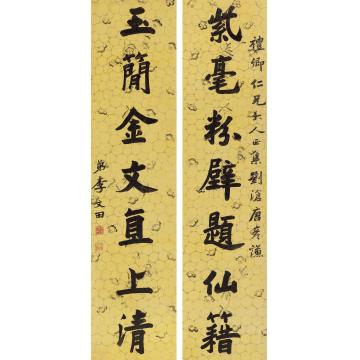 禮卿仁兄大人正集劉滄唐彥謙
紫毫粉壁題仙籍
玉簡金文直上清
弟李文田